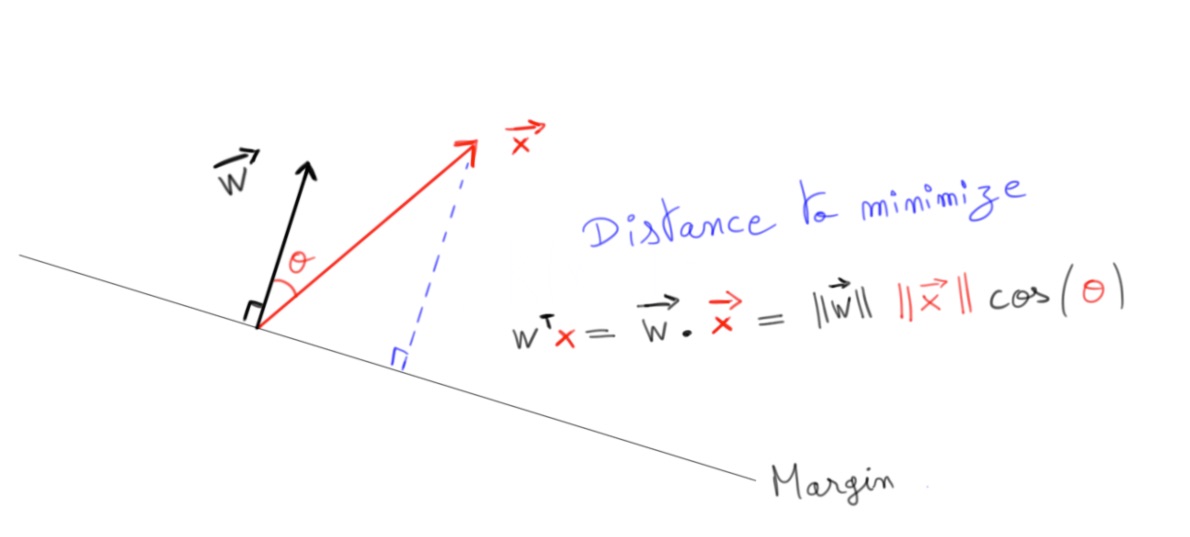 w⃗
x⃗
θ
Distance to minimize
wᵀx = w⃗ . x⃗ = ||w⃗|| ||x⃗|| cos(θ)
Margin